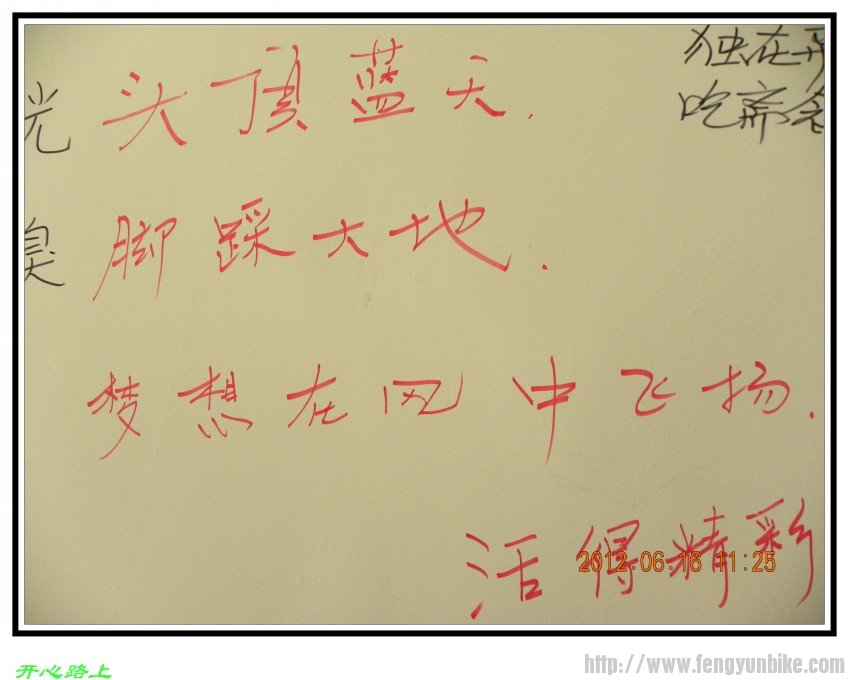 独在
吃斋
光
头顶蓝天.
脚踩大地.
臭
梦想在风中飞扬.
活得精彩
2012.06.16 11:25
开心路上
http://www.fengyunbike.com/